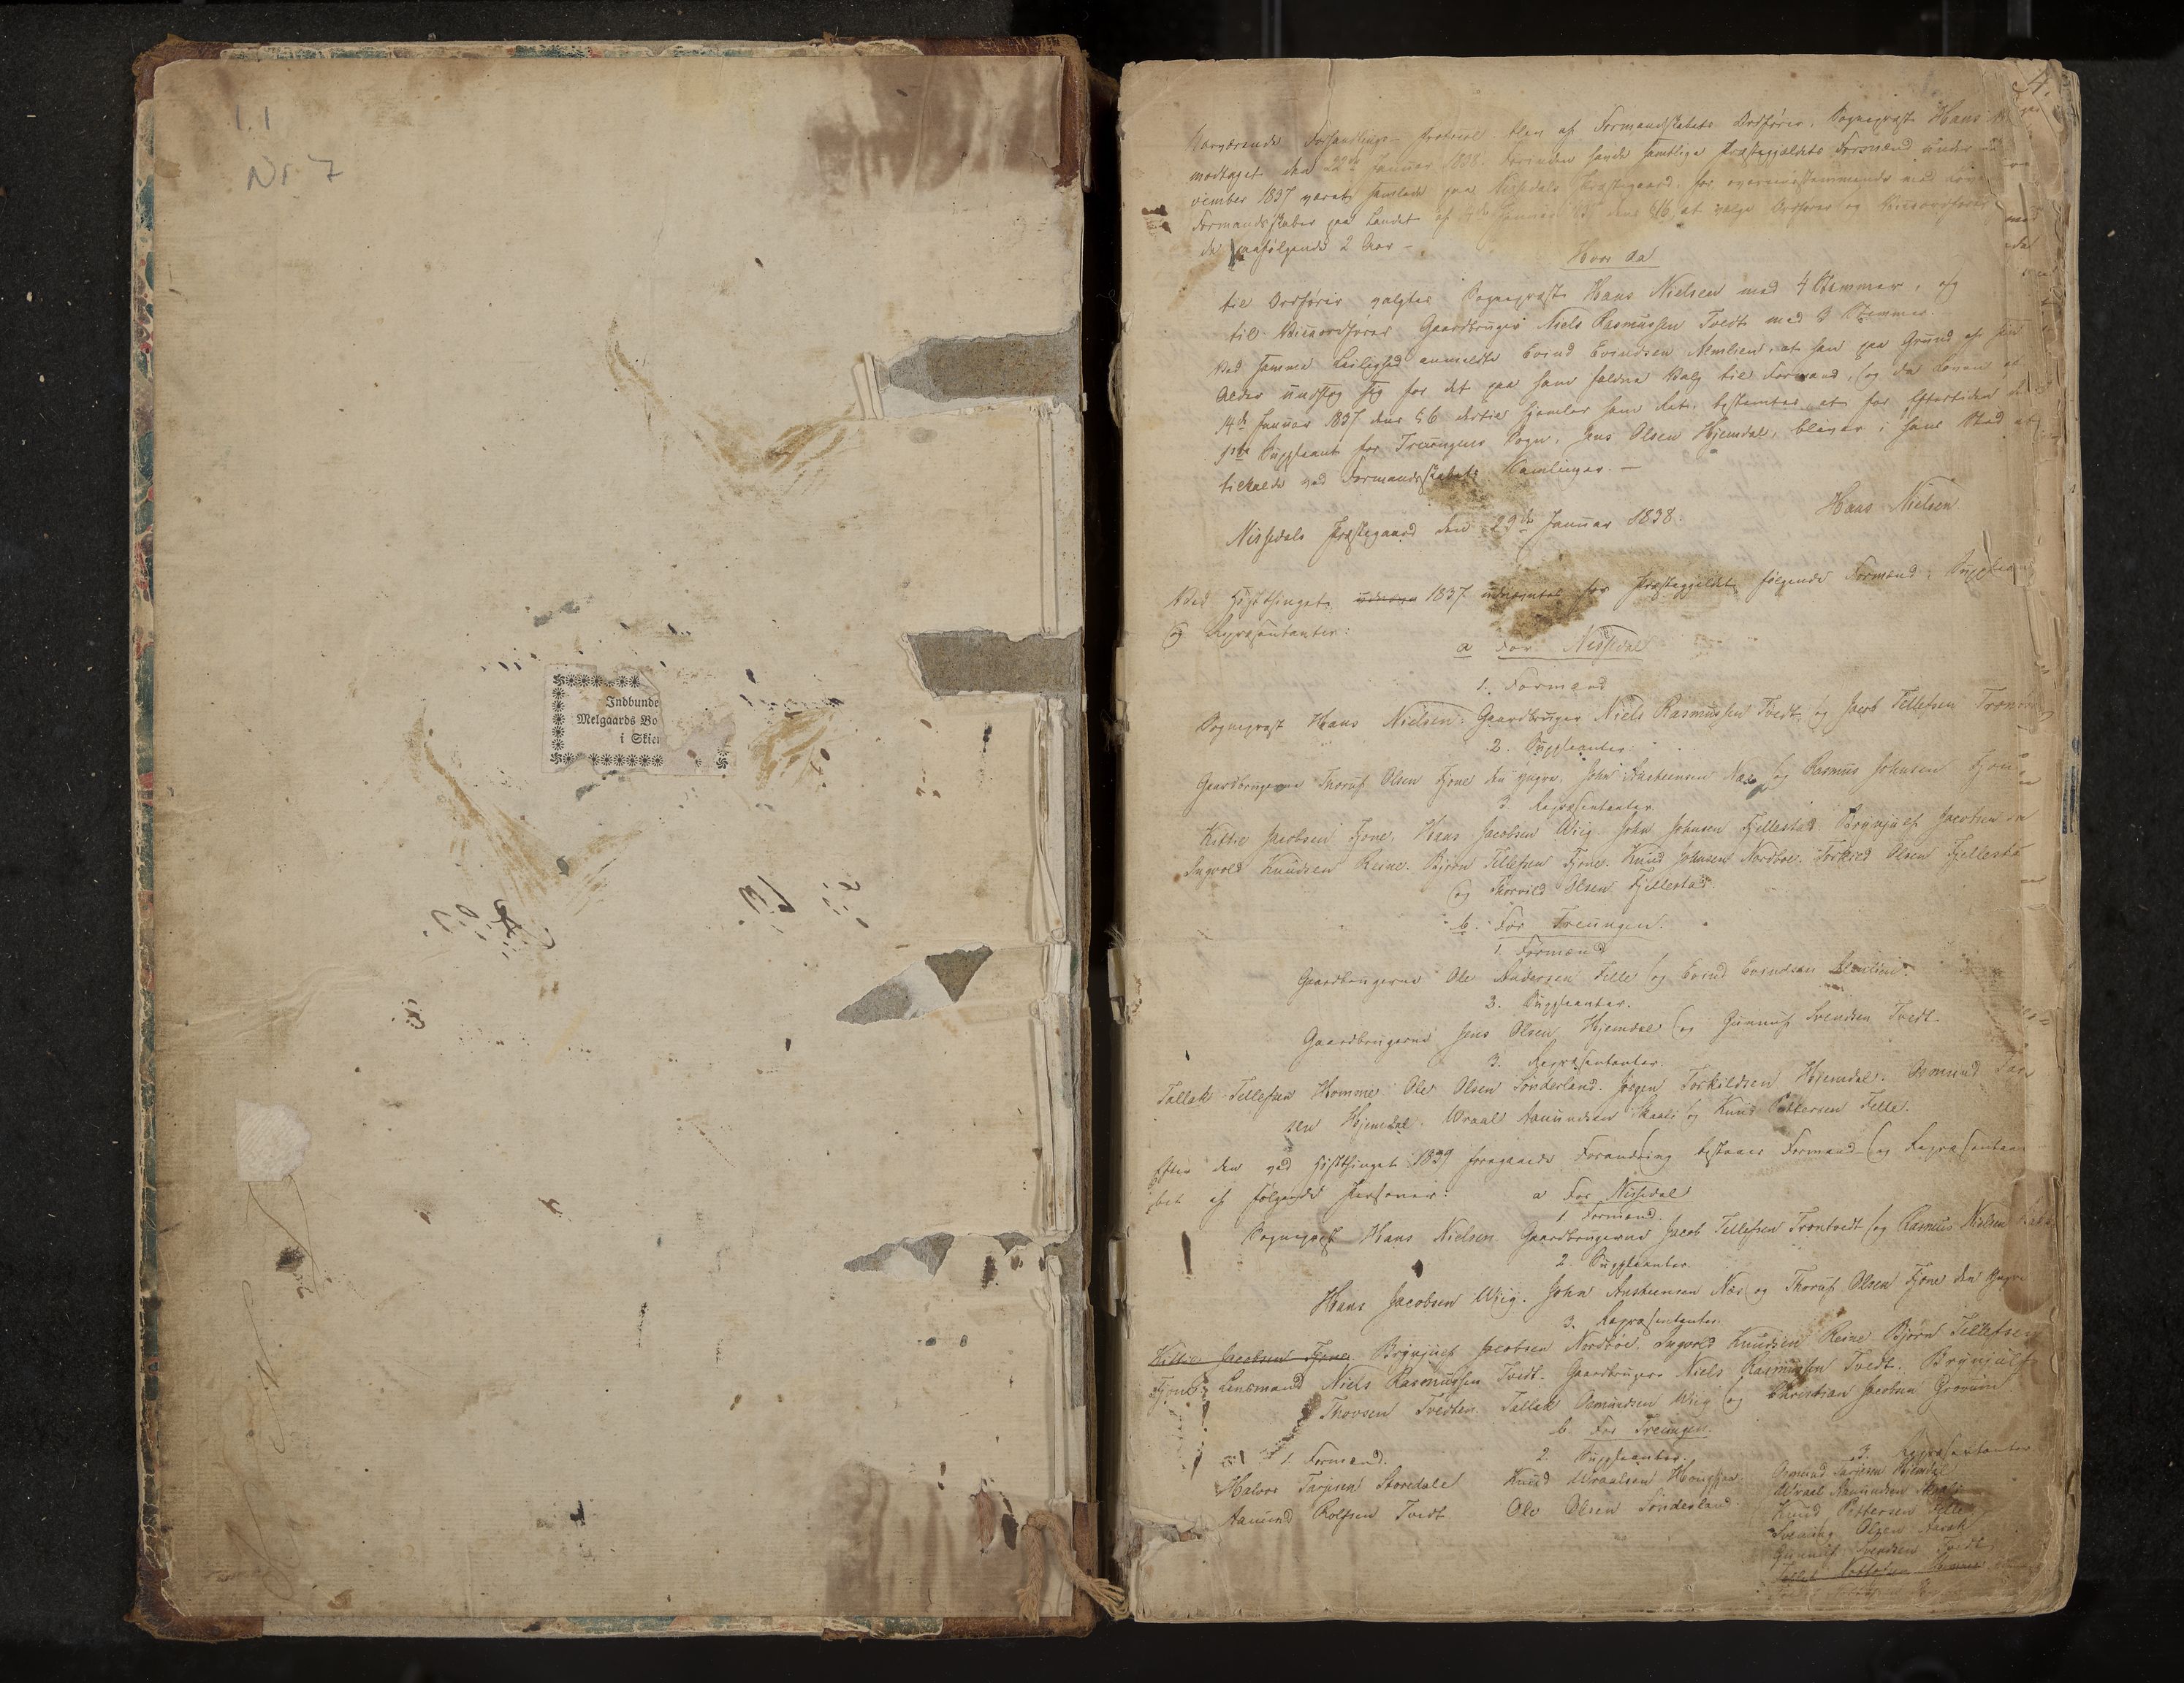 1.1
Nr 7
Indbunde
Melgaards Bo
i Skien
4.
Nærværende Forhandlings-Protocol blev af Formandskabets Ordfører, Sogneprest Hans
modtaget den 22de Januar 1838. Forinden havde samtlige Præstegjeldets Formænd under
vember 1837 været samlede paa Nissedals Præstegaard, for overeensstemmende med
Formandskaber paa Landet af 14de Januar 1837 dens §16, at vælge Ordfører og Viceordfører
de paafølgende 2 Aar -
Hvor da
til Ordfører valgtes Sogneprest Hans Nielsen med 4 Stemmer, og
til Viceordfører Gaardbruger Niels Rasmussen Tvedt med 3 Stemmer.
Ved samme Leilighed anmeldte Evind Evindsen Almlien, at han paa Grund af sin
Alder undslog sig for det paa ham faldne Valg til Formand, og da Loven af
14de Januar 1837 dens §6 dertil hjemler ham Ret, bestemtes, at for Eftertiden
1ste Suppleant for Treungens Sogn, Jens Olsen Hjemdal, bliver i hans Sted at
tilkalde ved Formandsskabets Samlinger. -
Nissedals Præstegaard den 29de Januar 1838.
Hans Nielsen
Ved Høstthinget 1837 udnævntes for Præstegjeldet følgende Formænd, Suppleanter
og Repræsentanter:
a For Nissedal
1. Formænd
Sogneprest Hans Nielsen. Gaardbruger Niels Rasmussen Tvedt og Jacob Tellefsen
2. Suppleanter.
Gaardbrugerne Thoruf Olsen Fjone den yngre, John Austeensen Næs og Rasmus Johnsen
3 Repræsentanter.
Kittil Jacobsen Fjone, Hans Jacobsen Wiig. John Johnsen Fjellestad. Brynjulf Jacobsen
Ingvold Knudsen Reine. Bjørn Tellefsen Fjone. Knud Johnsen Nordboe. Torkild Olsen
og Thorvild Olsen Fjellestad.
b. For Treungen.
1. Formænd
Gaardbrugerne Ole Andersen Felle og Evind Evindsen Almlien.
2. Suppleanter.
Gaardbrugerne Jens Olsen Hjemdal og Gunnuf Svendsen Tvedt.
3. Repræsentanter.
Tallak Tellefsen Homme. Ole Olsen Sønderland. Jørgen Torkildsen Hjemdal. Osmund
sen Hjemdal. Wraal Aanundsen Skaali og Knud Pettersen Felle.
Efter den ved Høstthinget 1839 foregaaede Forandring bestaaer Formænd- og Repræsentan
bet af følgende Personer:
a For Nissedal
1. Formænd.
Sogneprest Hans Nielsen. Gaardbrugerne Jacob Tellefsen Trontvedt og Rasmus Nielsen
2 Suppleanter.
Hans Jacobsen Wiig. John Austeensen Næs og Thoruf Olsen Fjone den yngre
3. Repræsentanter.
Kittil Jacobsen Fjone. Brynjulf Jacobsen Nordboe. Ingvold Knudsen Reine. Bjørn Tellefsen
Fjone. Lensmand Niels Rasmussen Tvedt. Gaardbruger Niels Rasmussen Tvedt. Brynjulf
Thovsen Tvedten. Tallak Osmundsen Wiig og Christian Jacobsen Grovum
b. For Treungen.
1. Formænd. 2. Suppleanter. 3. Repræsentanter
Halvor Tarjesen Storedale Knud Wraalsen Osmund Tarjesen Hjemdal
Wraal Aanundsen Skaali
Aanund Rolfsen Tvedt Ole Olsen Sønderland Knud Pettersen Felle
Olsen
Gunnuf Svendsen Tvedt